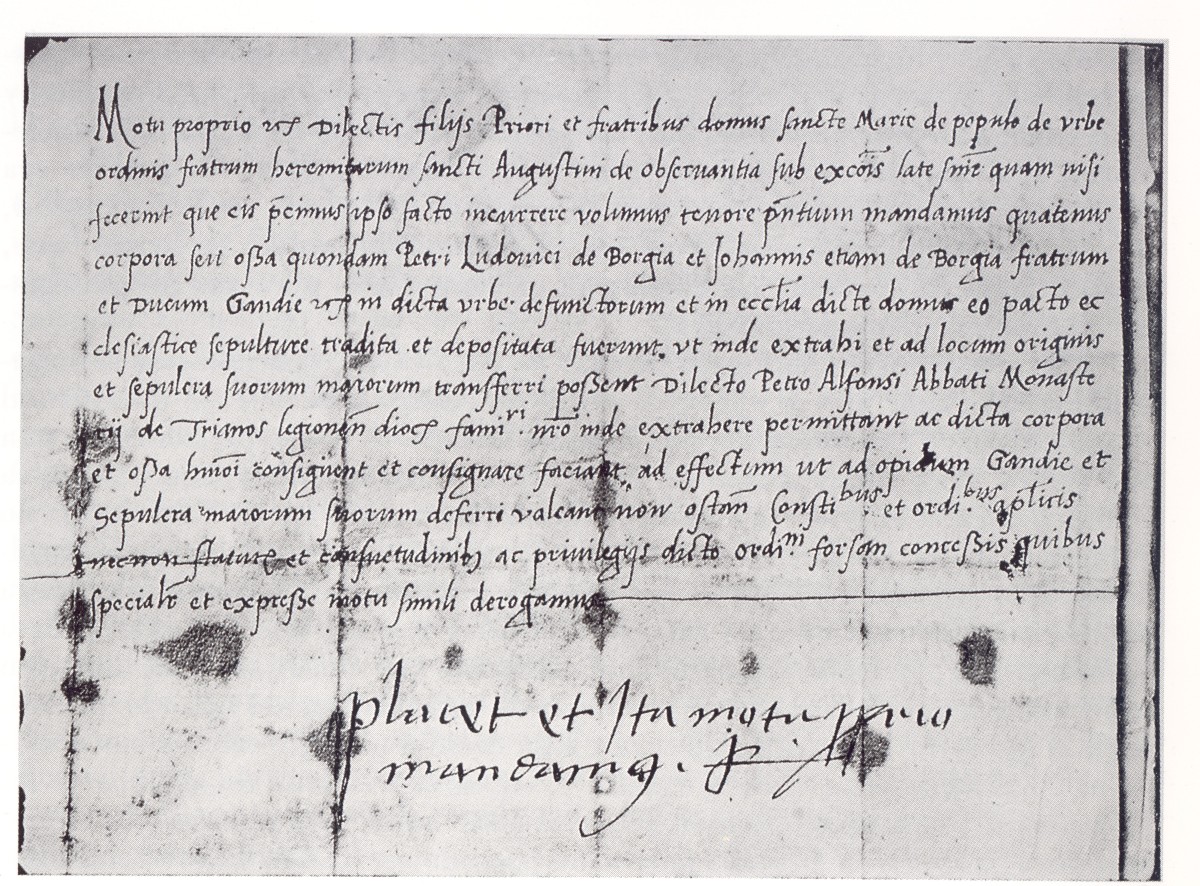 Motu proprio etc Dilectis filijs Priori et fratribus domus sancte Marie de populo de vrbe
ordinis fratrum heremitarum sancti Augustini de obseruantia sub excōis late snīe quam nisi
fecerint que eis p̄cimus ipso facto incurrere volumus tenore pn̄tium mandamus quatenus
corpora seu ossa quondam Petri Ludouici de Borgia et Johannis etiam de Borgia fratrum
et Ducum Gandie etc in dicta vrbe defunctorum et in eccl̄ia dicte domus eo pacto ec
clesiastice sepulture tradita et depositata fuerunt vt inde extrahi et ad locum originis
et sepulcra suorum maiorum transferri possent Dilecto Petro Alfonsi Abbati Monaste
rij de Trianos legionen̄ dioc famiʳⁱ. nr̄o inde extrahere permittant ac dicta corpora
et ossa hmōi consignent et consignare faciant ad effectum ut ad opidum Gandie et
Sepulcra maiorum suorum deferri valeant non ostan̄ Constiᵇᵘˢ et ordi.ᵇᵘˢ apl̄icis
necnon statutis et consuetudinibꝫ ac priuilegijs dicto ordi.ⁿⁱ forsan concessis quibus
specialr̄ et expresse motu simili derogamus
placet et Ita motu ꝓprio
mandamꝰ. R